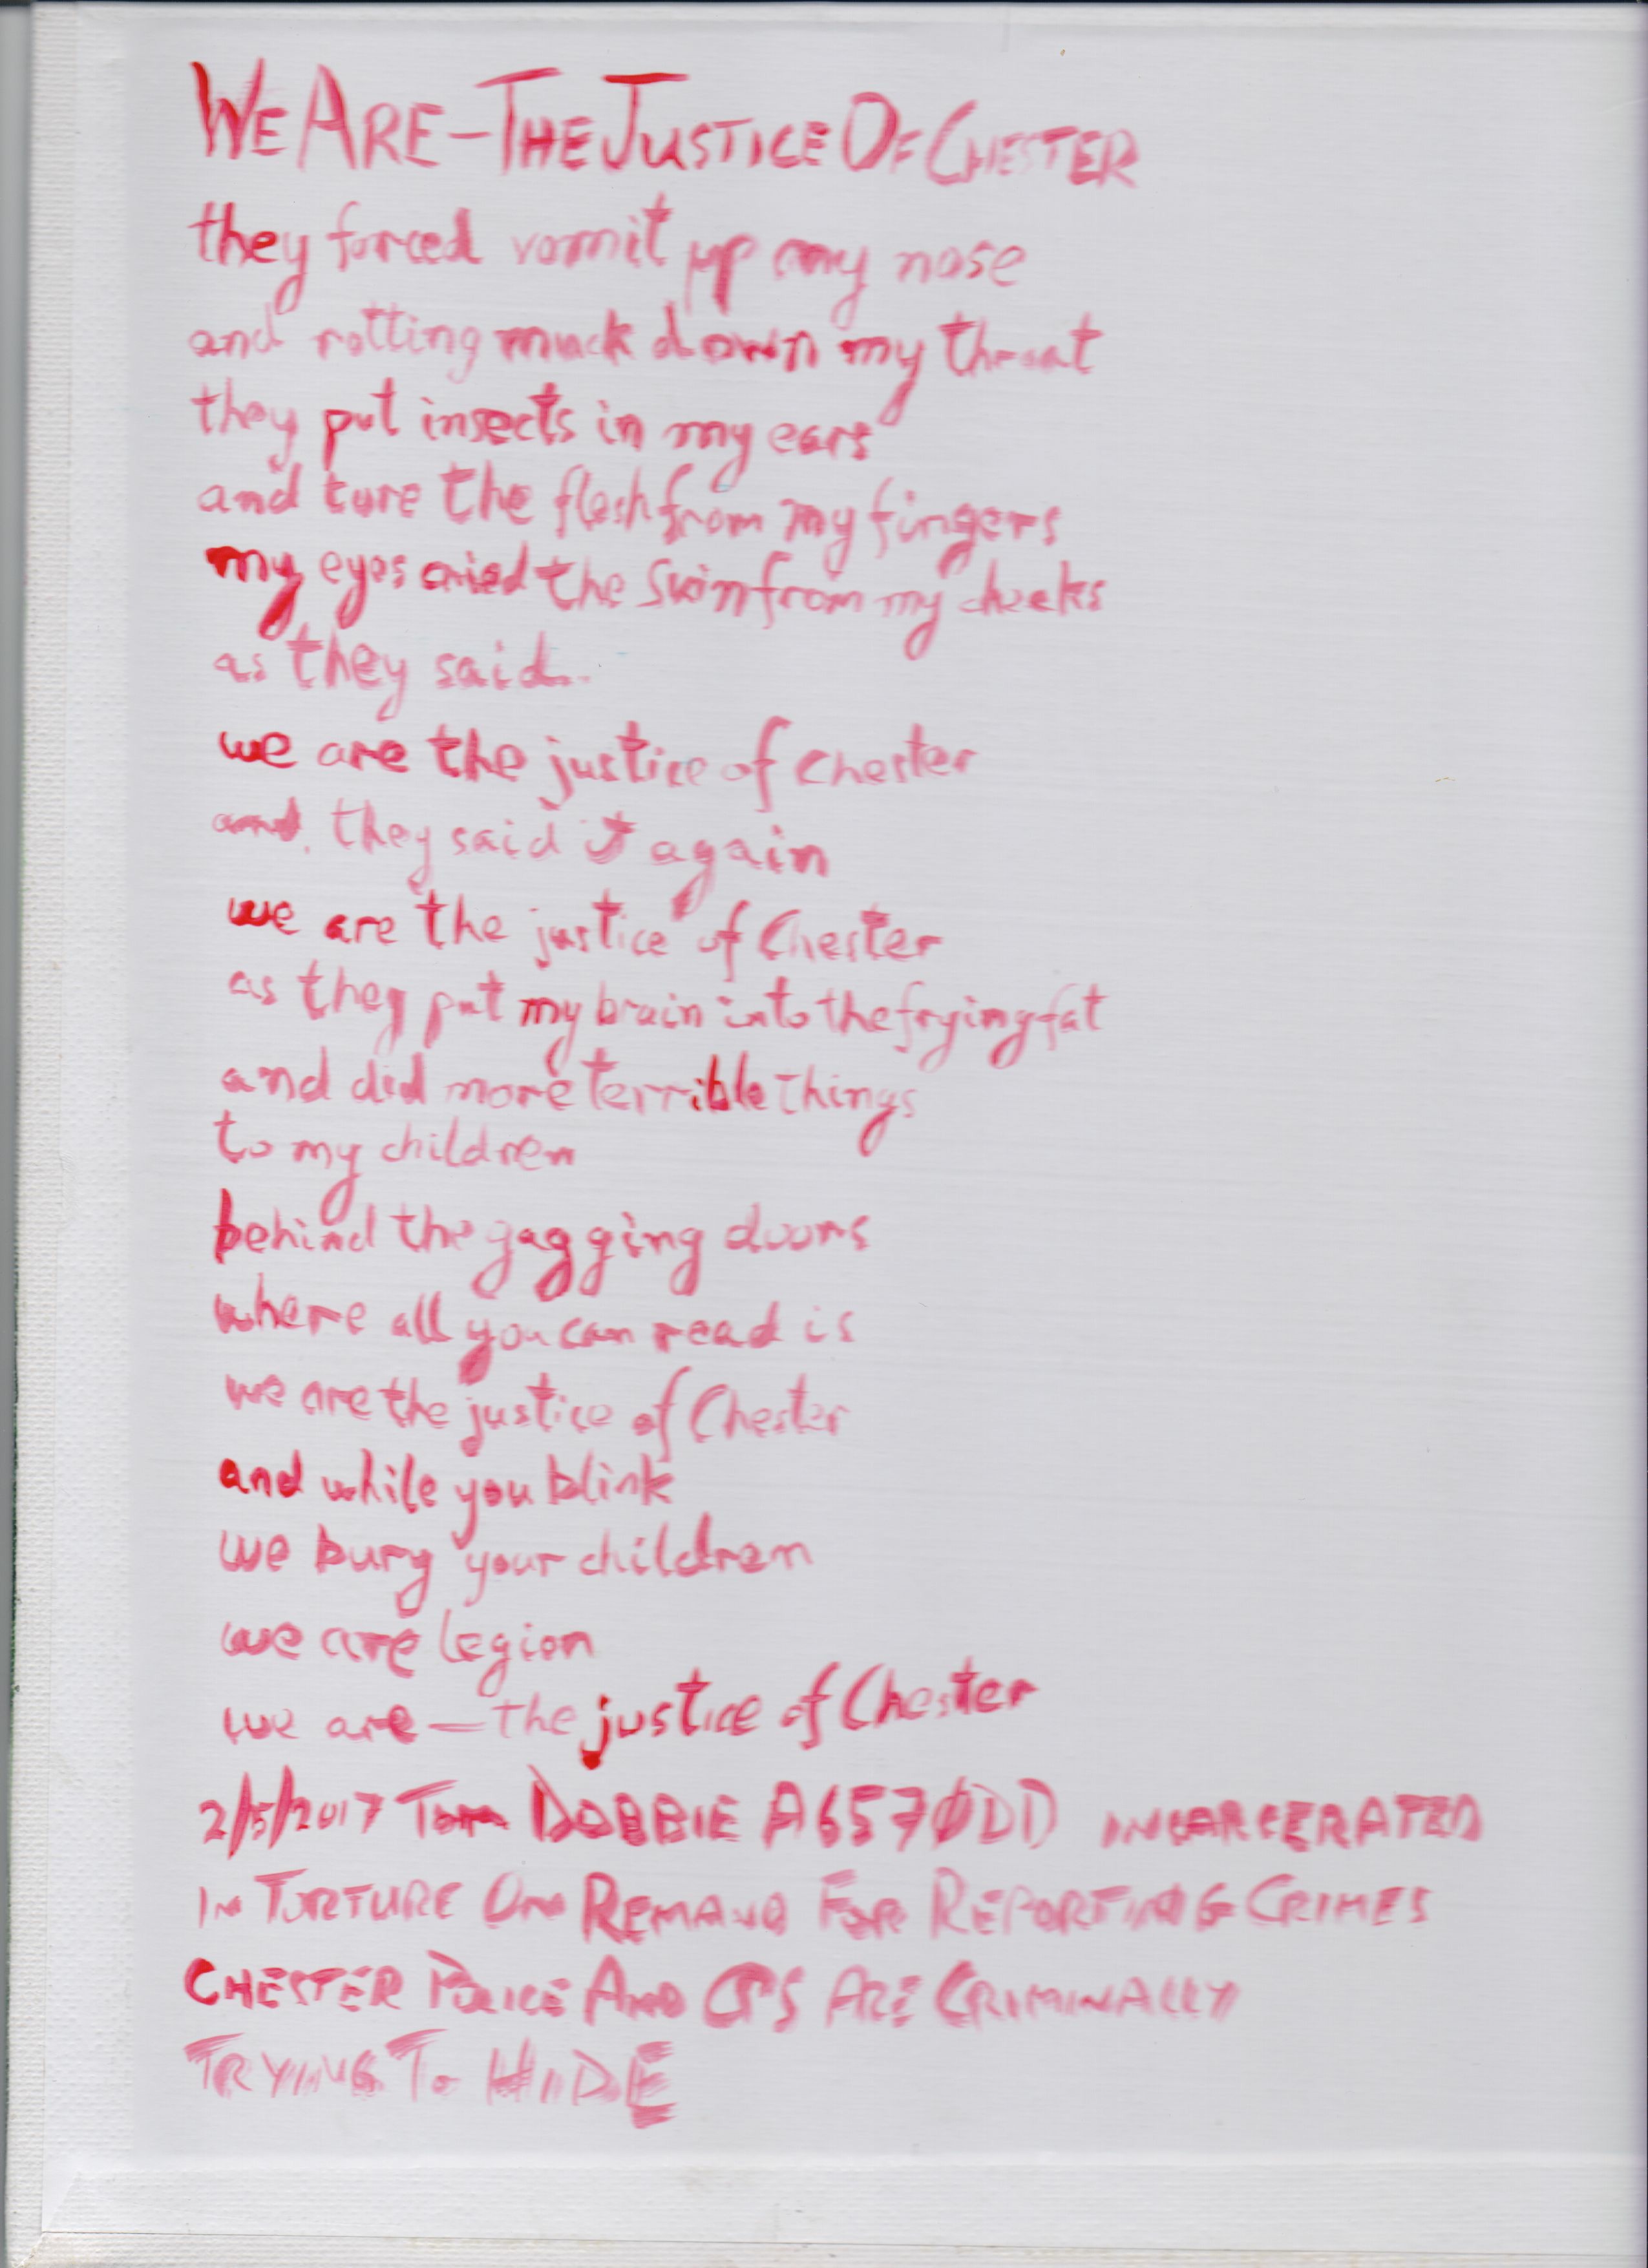 WE ARE - THE JUSTICE OF CHESTER
they forced vomit up my nose
and rotting muck down my throat
they put insects in my ears
and tore the flesh from my fingers
my eyes cried the skin from my cheeks
as they said..
we are the justice of Chester
and. they said it again
we are the justice of Chester
as they put my brain into the frying fat
and did more terrible things
to my children
behind the gagging doors
where all you can read is
we are the justice of Chester
and while you blink
we bury your children
we are legion
we are — the justice of Chester
2/5/2017 Tom DOBBIE A6570DD INCARCERATED
IN TORTURE ON REMAND FOR REPORTING CRIMES
CHESTER POLICE AND CPS ARE CRIMINALLY
TRYING TO HIDE